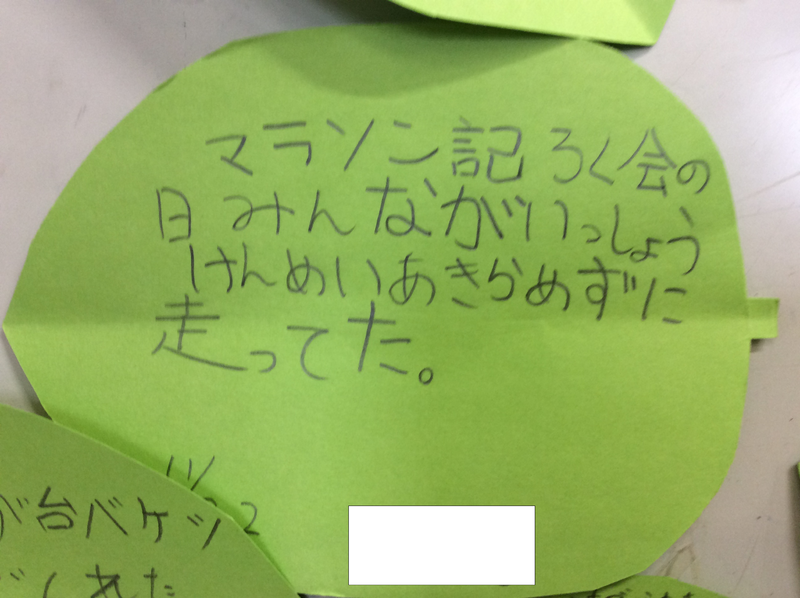 マラソン記ろく会の
日みんながいっしょう
けんめいあきらめずに
走ってた。
が台バケツ